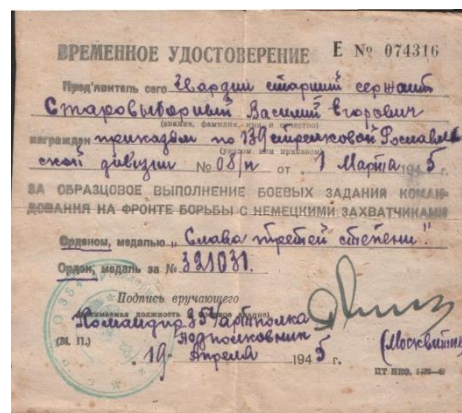 ВРЕМЕННОЕ УДОСТОВЕРЕНИЕ Е № 074316
Пред'явитель сего Гвардии старший сержант
Старовыборный Василий Егорович
(звание, фамилия, имя и отчество)
награжден приказом по 139 стрелковой Рославль
ской дивизии № 08/н от 1 Марта 1945 г.
ЗА ОБРАЗЦОВОЕ ВЫПОЛНЕНИЕ БОЕВЫХ ЗАДАНИЯ КОМАН-
ДОВАНИЯ НА ФРОНТЕ БОРЬБЫ С НЕМЕЦКИМИ ЗАХВАТЧИКАМИ
Орденом, медалью „Слава третей степени"
Орден, медаль за № 321031.
Подпись вручающего
(занимаемая должность и военное звание)
Командир 354 артполка
Подполковник
(М. П.) 19 Апреля 1945 г. (Москвитин)
ЦТ НКО.